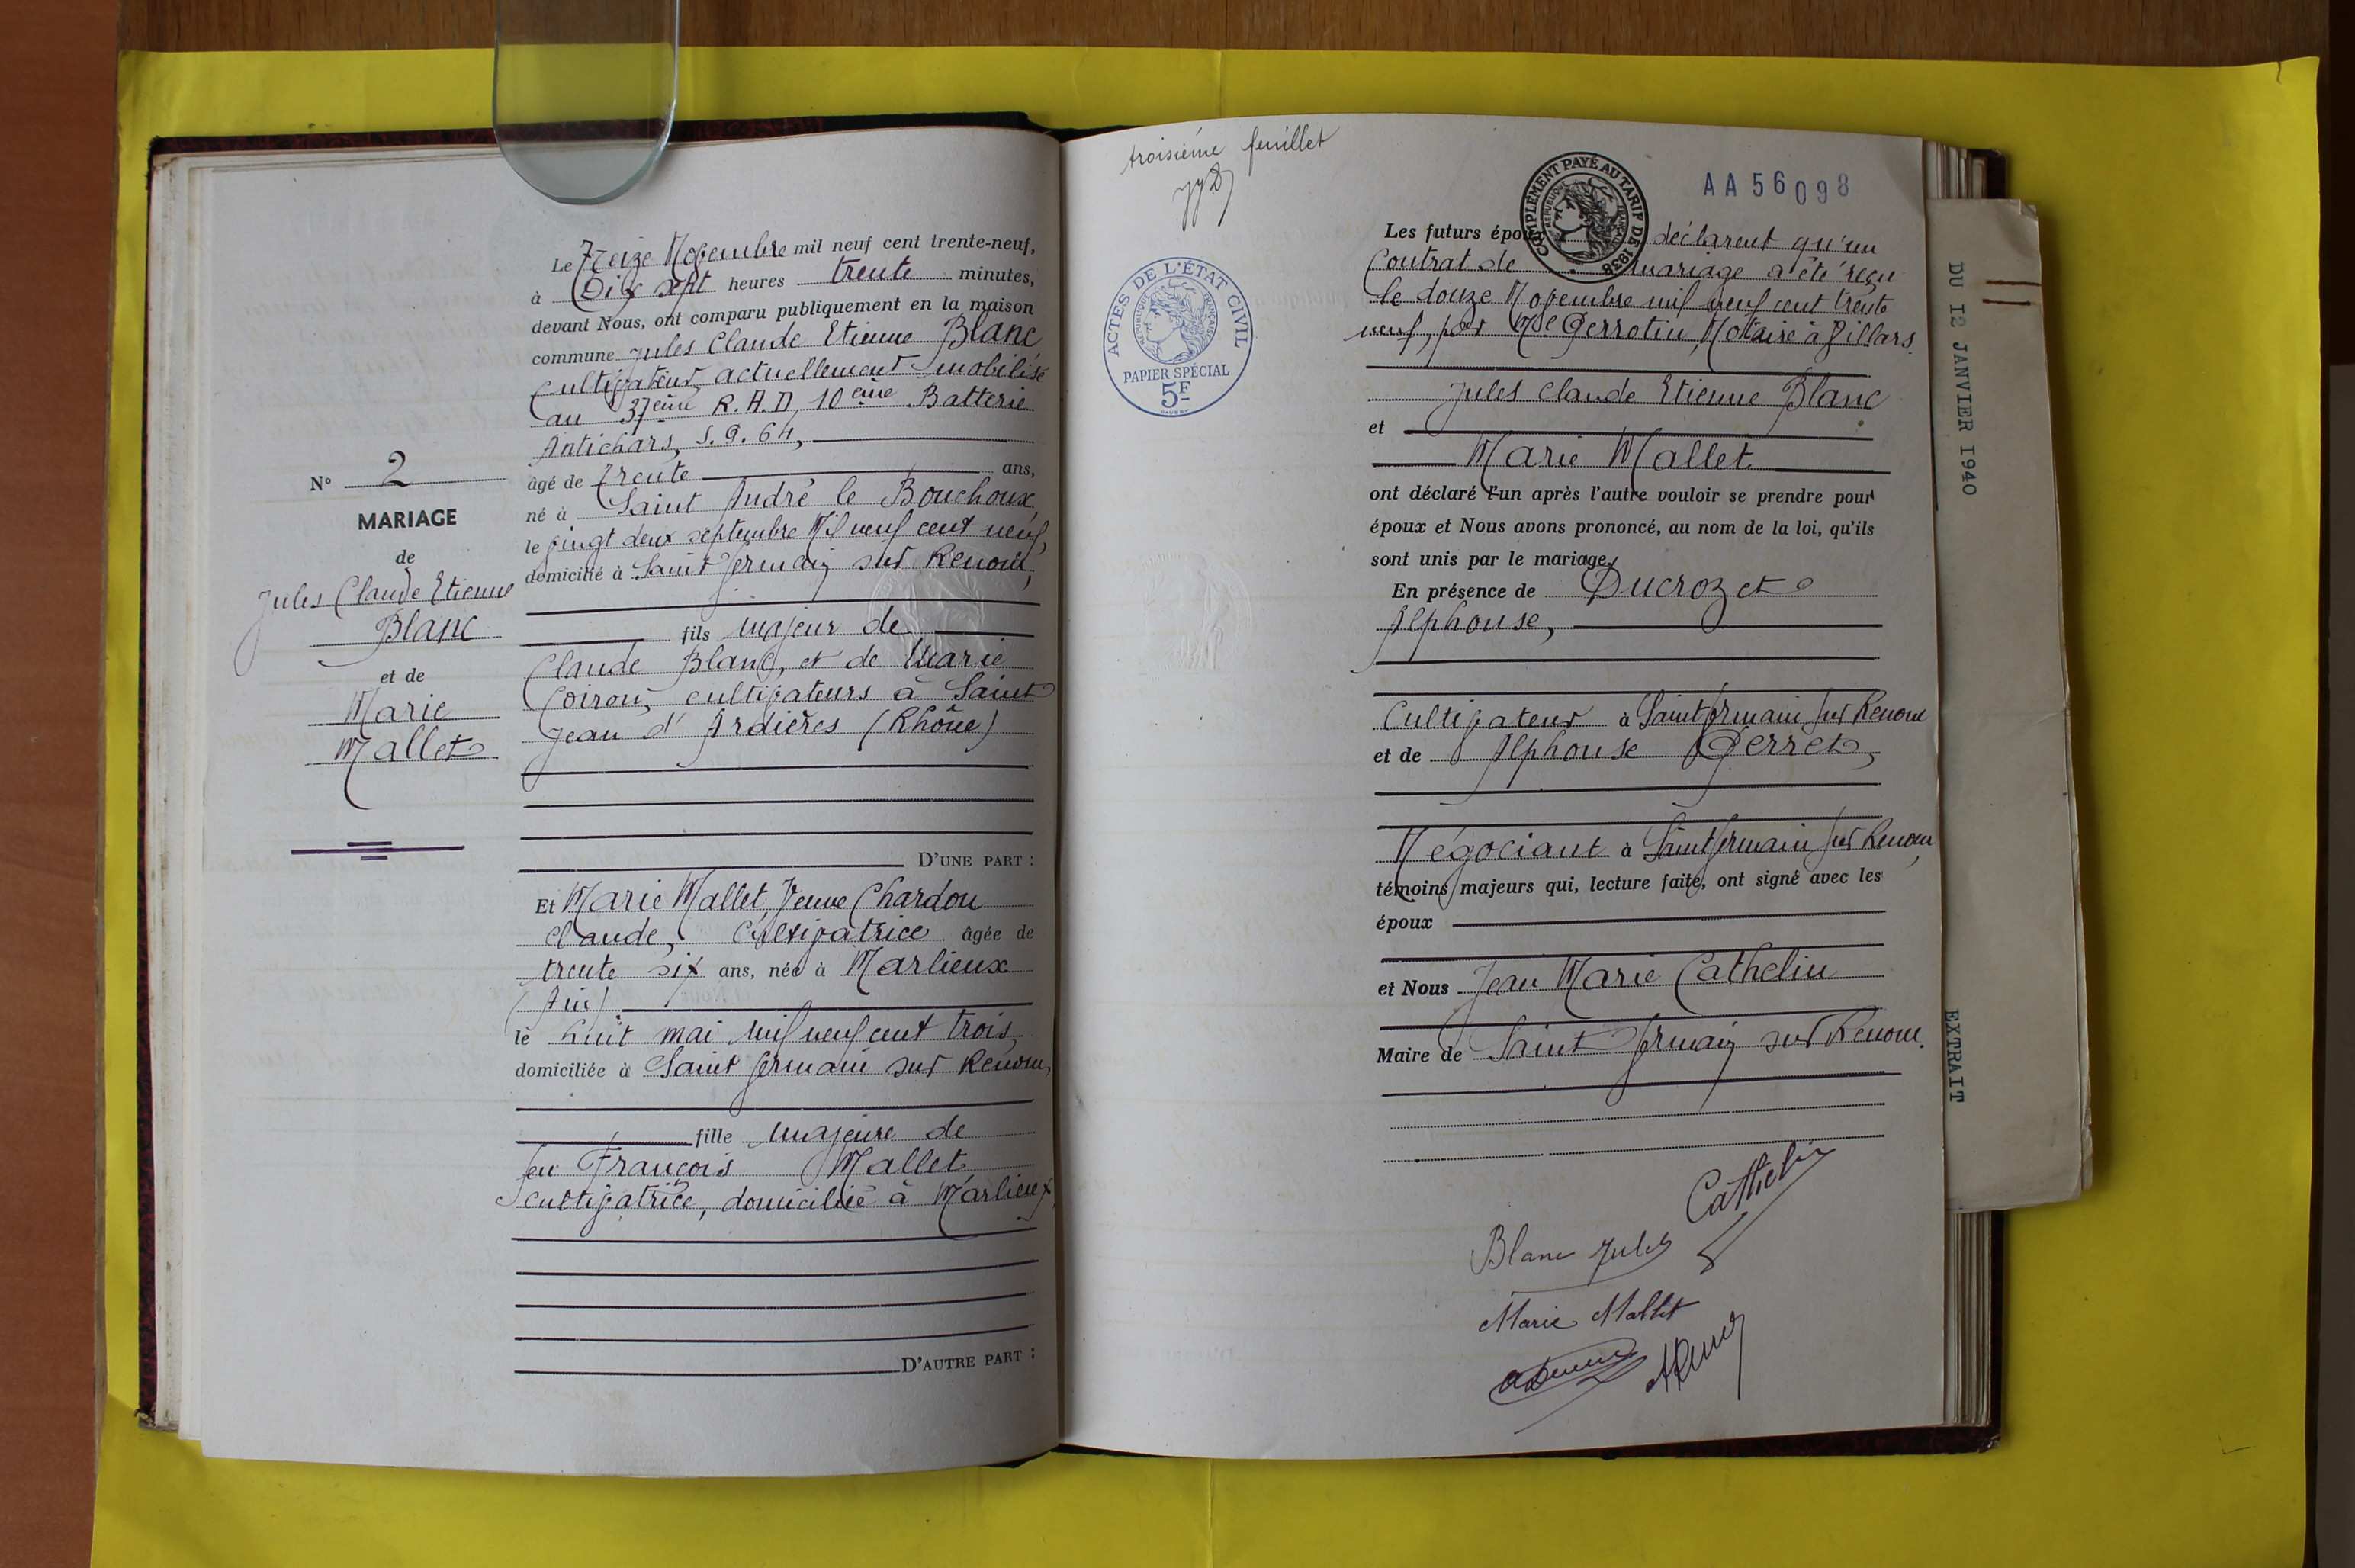 N° 2
MARIAGE
de
Jules Claude Etienne
Blanc
et de
Marie
Mallet
Le Treize Novembre mil neuf cent trente-neuf,
à Dix sept heures trente minutes,
devant Nous, ont comparu publiquement en la maison
commune Jules Claude Etienne Blanc
cultivateur, actuellement mobilisé
au 37eme R.A.D, 10eme Batterie
Antichars, S.P. 64,
âgé de trente ans,
né à Saint André le Bouchoux,
le vingt deux septembre Mil neuf cent neuf,
domicilié à Saint Germain sur Renom,
fils majeur de
Claude Blanc, et de Marie
Coiron, cultivateurs à Saint
Jean d'Ardières (Rhône)
D'UNE PART :
Et Marie Mallet, Veuve Chardon
Claude, Cultivatrice âgée de
trente six ans, née à Marlieux
(Ain)
le huit mai mil neuf cent trois
domiciliée à Saint Germain sur Renom,
fille majeure de
feu François Mallet
cultivatrice, domiciliée à Marlieux
D'AUTRE PART :
troisième feuillet
ACTES DE L'ÉTAT CIVIL
RÉPUBLIQUE FRANÇAISE
PAPIER SPÉCIAL
5F
COMPLÉMENT PAYÉ AU TARIF DE 1938
RÉPUBLIQUE FRANÇAISE
AA56098
Les futurs époux déclarent qu'un
Contrat de mariage a été reçu
le douze Novembre mil neuf cent trente
neuf, par Me Perrotin, Notaire à Villars.
Jules Claude Etienne Blanc
et
Marie Mallet
ont déclaré l'un après l'autre vouloir se prendre pour
époux et Nous avons prononcé, au nom de la loi, qu'ils
sont unis par le mariage,
En présence de Ducrozet
Alphonse,
Cultivateur à Saint Germain sur Renom
et de Alphonse Perret,
Négociant à Saint Germain sur Renom,
témoins majeurs qui, lecture faite, ont signé avec les
époux
et Nous Jean Marie Cathelin
Maire de Saint Germain sur Renom.
Cathelin
Blanc Jules
Marie Mallet
DU 12 JANVIER 1940
EXTRAIT